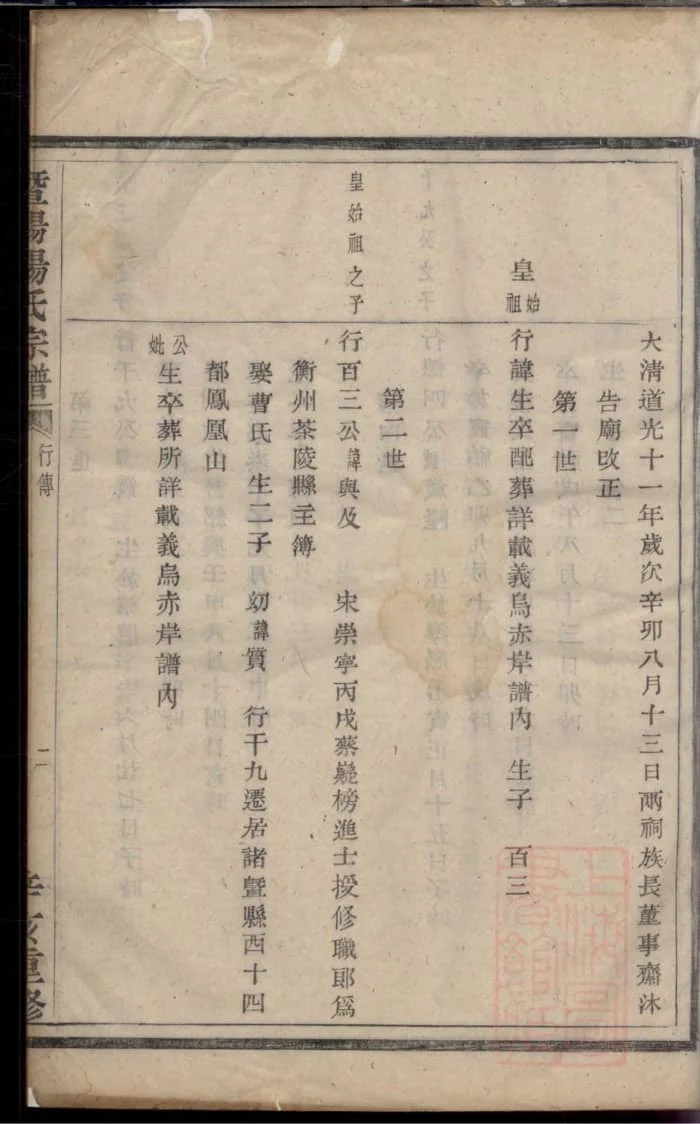 大清道光十一年歲次辛卯八月十三日兩祠族長董事齋沐
告廟改正
第一世
皇始祖
行諱生卒配葬詳載義烏赤岸譜內 生子 百三
第二世
皇始祖之子
行百三公諱與及 宋崇寧丙戌蔡嶷榜進士授修職郎為
衡州茶陵縣主簿
娶曹氏 生二子 幼諱質 行千九遷居諸暨縣西十四
都鳳凰山
公妣生卒葬所詳載義烏赤岸譜內
暨陽楊氏宗譜
行傳
二
辛亥重修